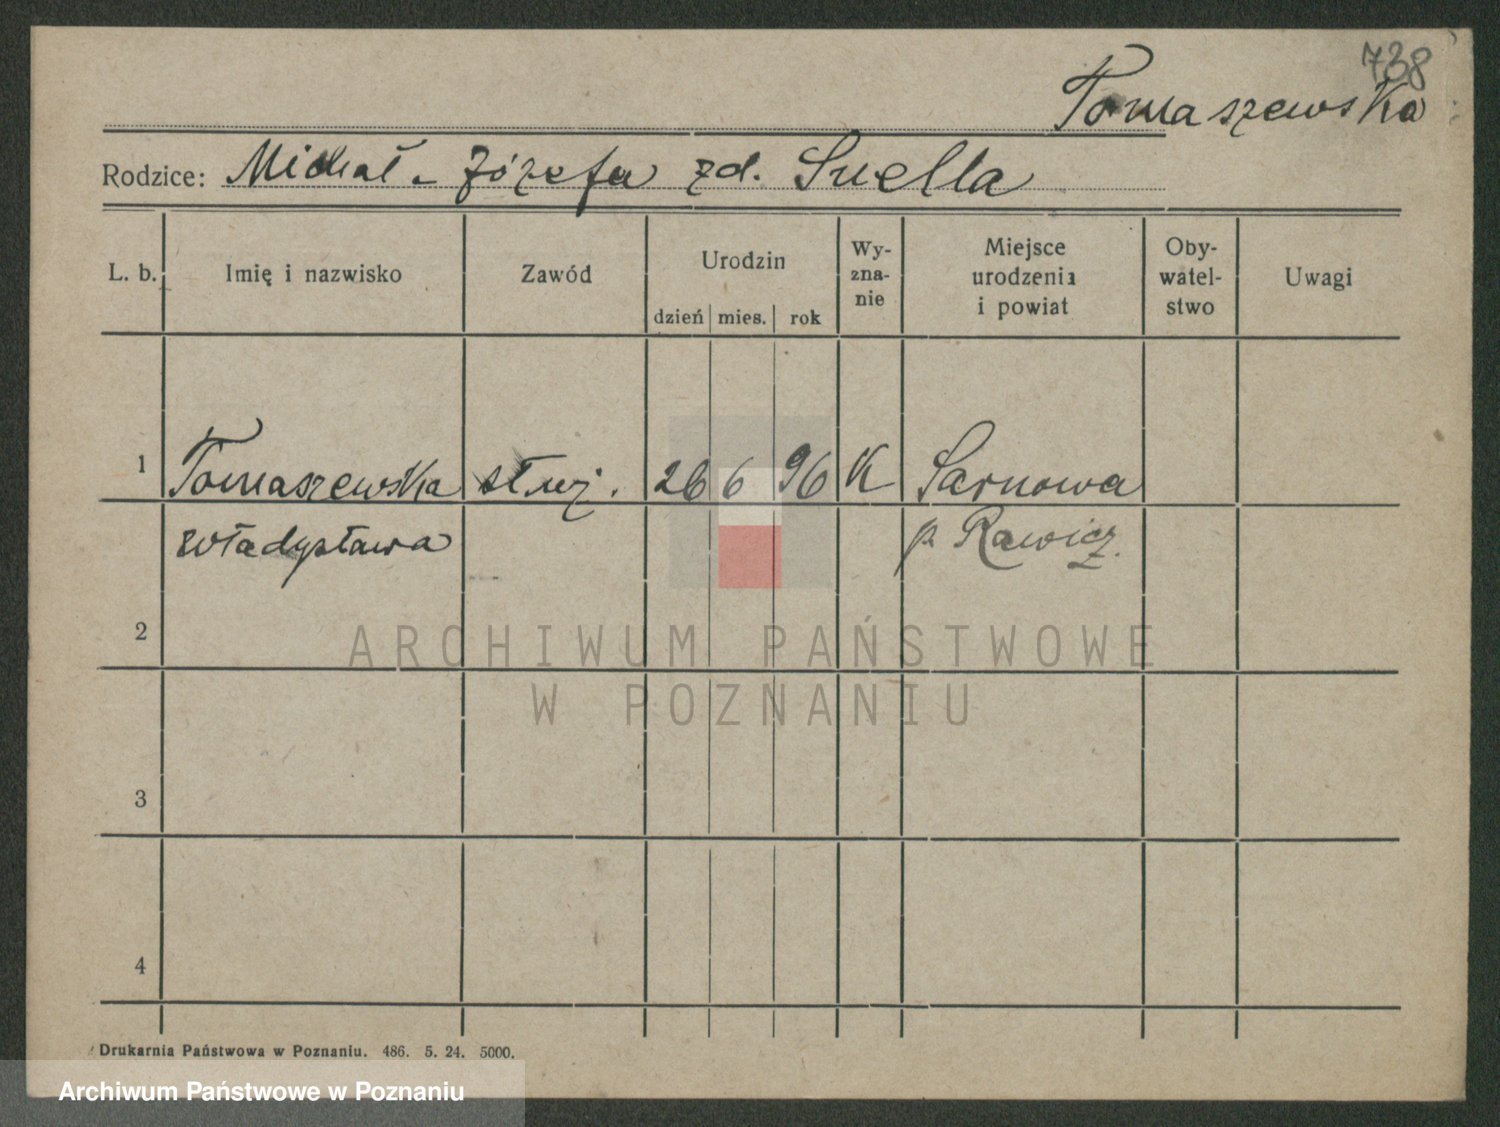 738
Tomaszewska
Rodzice: Michał - Józefa zd. Snella
L. b. Imię i nazwisko Zawód Urodzin dzień mies. rok Wy-zna-nie Miejsce urodzenia i powiat Oby-watel-stwo Uwagi
1 Tomaszewska służ. 26 6 96 K Sarnowa
Władysława p. Rawicz.
2
3
4
ARCHIWUM PAŃSTWOWE
W POZNANIU
Drukarnia Państwowa w Poznaniu. 486. 5. 24. 5000.
Archiwum Państwowe w Poznaniu